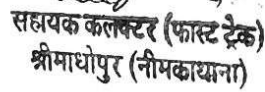 सहायक कलक्टर (फास्ट ट्रेक)
श्रीमाधोपुर (नीमकाथाना)